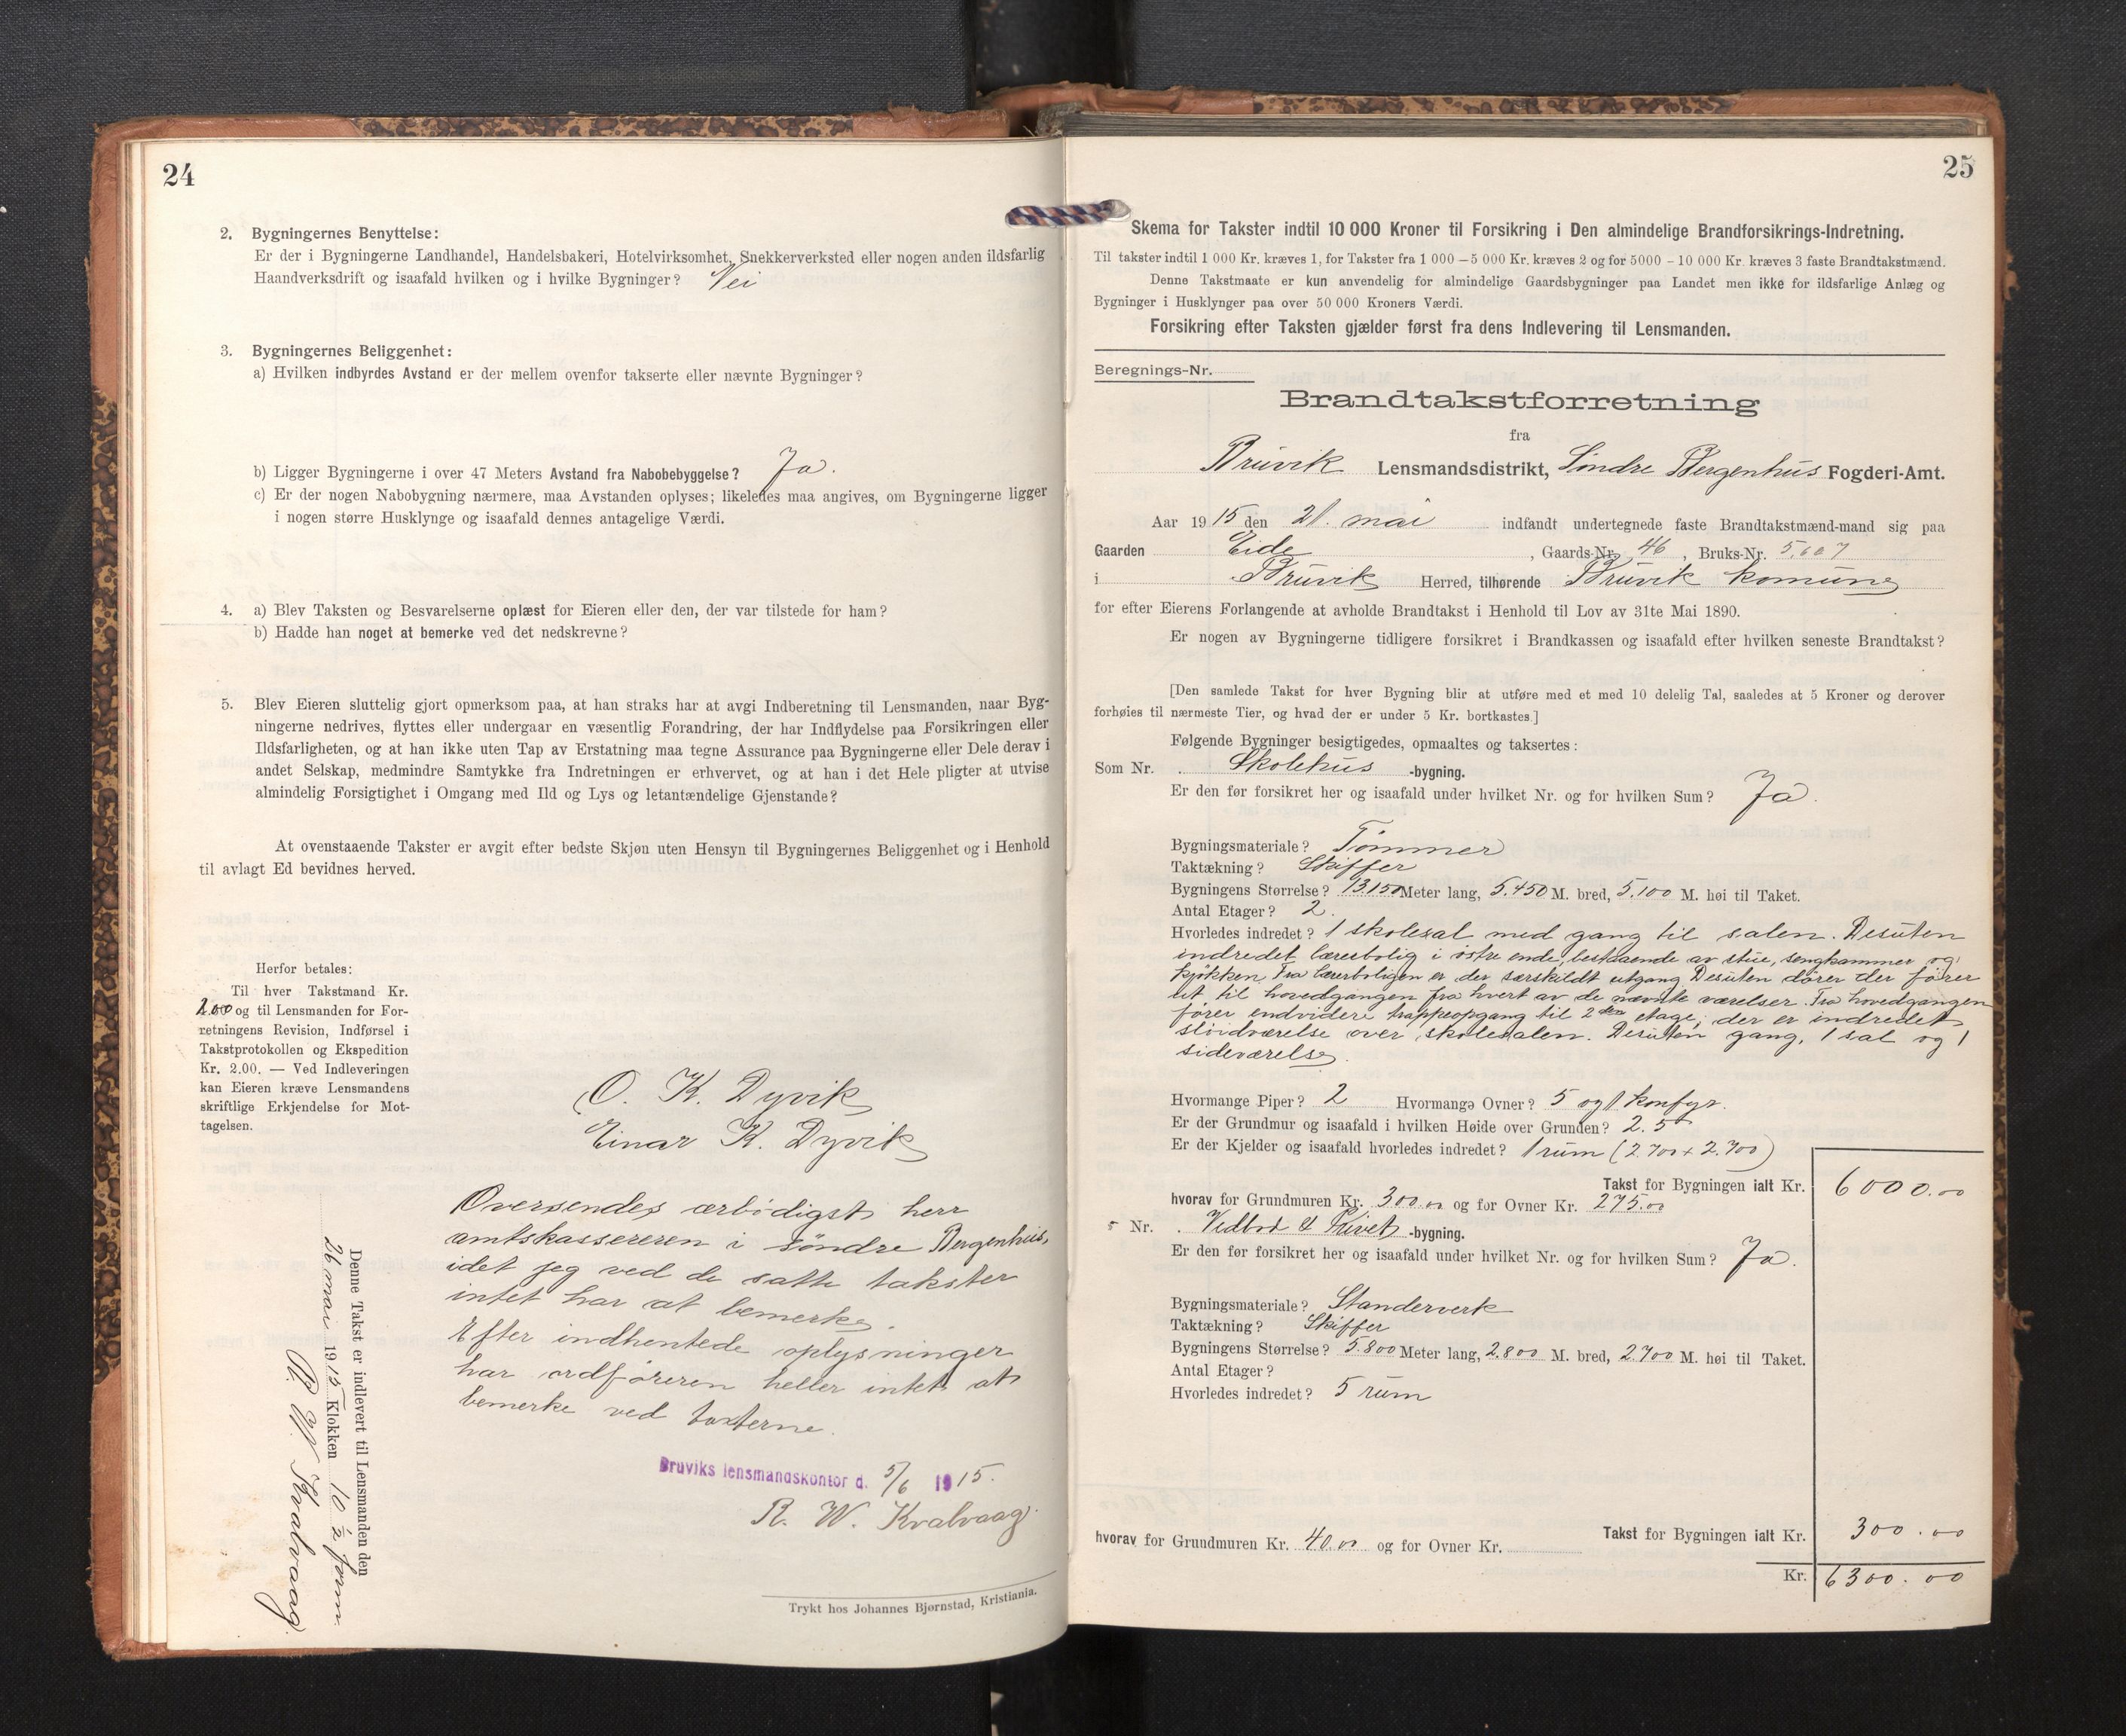 24
2. Bygningernes Benyttelse:
Er der i Bygningerne Landhandel, Handelsbakeri, Hotelvirksomhet, Snekkerverksted eller nogen anden ildsfarlig
Haandverksdrift og isaafald hvilken og i hvilke Bygninger? Nei
3. Bygningernes Beliggenhet:
a) Hvilken indbyrdes Avstand er der mellem ovenfor takserte eller nævnte Bygninger?
b) Ligger Bygningerne i over 47 Meters Avstand fra Nabobebyggelse? Ja.
c) Er der nogen Nabobygning nærmere, maa Avstanden oplyses; likeledes maa angives, om Bygningerne ligger
i nogen større Husklynge og isaafald dennes antagelige Værdi.
4. a) Blev Taksten og Besvarelserne oplæst for Eieren eller den, der var tilstede for ham?
b) Hadde han noget at bemerke ved det nedskrevne?
5. Blev Eieren sluttelig gjort opmerksom paa, at han straks har at avgi Indberetning til Lensmanden, naar Byg-
ningerne nedrives, flyttes eller undergaar en væsentlig Forandring, der har Indflydelse paa Forsikringen eller
Ildsfarligheten, og at han ikke uten Tap av Erstatning maa tegne Assurance paa Bygningerne eller Dele derav i
andet Selskap, medmindre Samtykke fra Indretningen er erhvervet, og at han i det Hele pligter at utvise
almindelig Forsigtighet i Omgang med Ild og Lys og letantændelige Gjenstande?
At ovenstaaende Takster er avgit efter bedste Skjøn uten Hensyn til Bygningernes Beliggenhet og i Henhold
til avlagt Ed bevidnes herved.
Herfor betales:
Til hver Takstmand Kr.
2.00 og til Lensmanden for For-
retningens Revision, Indførsel i
Takstprotokollen og Ekspedition
Kr. 2.00. — Ved Indleveringen
kan Eieren kræve Lensmandens
skriftlige Erkjendelse for Mot-
tagelsen.
O. K. Dyvik
Einar K. Dyvik
Oversendes ærbødigst herr
amtskassereren i söndre Bergenhus,
idet jeg ved de satte takster
intet har at bemerke.
Efter indhentede oplysninger
har ordföreren heller intet at
bemerke ved taxterne.
Bruviks lensmandskontor d. 5/6 1915.
R. W. Kvalvaag
Denne Takst er indlevert til Lensmanden den
26 mai 1915 Klokken 10 1/2 form.
R. W. Kvalvaag
Trykt hos Johannes Bjørnstad, Kristiania.
25
Skema for Takster indtil 10 000 Kroner til Forsikring i Den almindelige Brandforsikrings-Indretning.
Til takster indtil 1 000 Kr. kræves 1, for Takster fra 1 000 – 5 000 Kr. kræves 2 og for 5000 – 10 000 Kr. kræves 3 faste Brandtakstmænd.
Denne Takstmaate er kun anvendelig for almindelige Gaardsbygninger paa Landet men ikke for ildsfarlige Anlæg og
Bygninger i Husklynger paa over 50 000 Kroners Værdi.
Forsikring efter Taksten gjælder først fra dens Indlevering til Lensmanden.
Beregnings-Nr.
Brandtakstforretning
fra
Bruvik Lensmandsdistrikt, Söndre Bergenhus Fogderi-Amt.
Aar 1915 den 21. mai indfandt undertegnede faste Brandtakstmænd-mand sig paa
Gaarden Eide, Gaards-Nr. 46, Bruks-Nr. 5,607
i Bruvik Herred, tilhørende Bruvik komune
for efter Eierens Forlangende at avholde Brandtakst i Henhold til Lov av 31te Mai 1890.
Er nogen av Bygningerne tidligere forsikret i Brandkassen og isaafald efter hvilken seneste Brandtakst?
[Den samlede Takst for hver Bygning blir at utføre med et med 10 delelig Tal, saaledes at 5 Kroner og derover
forhøies til nærmeste Tier, og hvad der er under 5 Kr. bortkastes.]
Følgende Bygninger besigtigedes, opmaaltes og taksertes:
Som Nr. Skolehus -bygning.
Er den før forsikret her og isaafald under hvilket Nr. og for hvilken Sum? Ja.
Bygningsmateriale? Tømmer
Taktækning? Skiffer
Bygningens Størrelse? 13.150 Meter lang, 5.450 M. bred, 5.100 M. høi til Taket.
Antal Etager? 2.
Hvorledes indredet? 1 skolesal med gang til salen. Desuten
indredet lærerbolig i østre ende, bestaaende av stue, sengkammer og
kjökken. Fra lærerboligen er der særskildt utgang. Desuten dører der fører
ut til hovedgangen fra hvert av de nævnte værelser. Fra hovedgangen
fører endvidere trappeopgang til 2den etage, der er indredet
sløidværelse over skolesalen. Desuten gang, 1 sal og 1
sideværelse.
Hvormange Piper? 2 Hvormange Ovner? 5 og 1 komfyr.
Er der Grundmur og isaafald i hvilken Høide over Grunden? 2.50
Er der Kjelder og isaafald hvorledes indredet? 1 rum (2.700 + 2.700)
Takst for Bygningen ialt Kr. 6000.00
hvorav for Grundmuren Kr. 300.00 og for Ovner Kr. 275.00
Nr. Vedbod & Privet -bygning.
Er den før forsikret her og isaafald under hvilket Nr. og for hvilken Sum? Ja.
Bygningsmateriale? Standerverk
Taktækning? Skiffer
Bygningens Størrelse? 5.800 Meter lang, 2.800 M. bred, 2.700 M. høi til Taket.
Antal Etager?
Hvorledes indredet? 5 rum
Takst for Bygningen ialt Kr. 300.00
hvorav for Grundmuren Kr. 40.00 og for Ovner Kr.
Kr. 6300.00